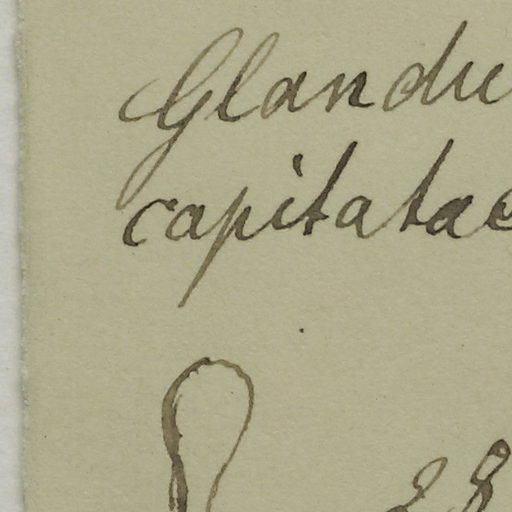 Glandu
capitatae